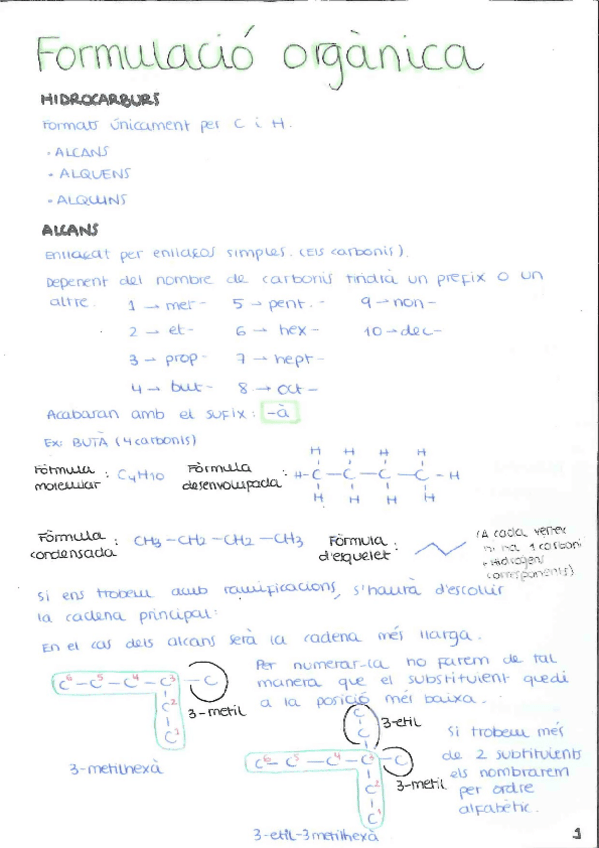 Formulació orgànica
HIDROCARBURS
Formats únicament per C i H.
- ALCANS
- ALQUENS
- ALQUINS
ALCANS
Enllaçat per enllaços simples. (Els carbonis).
Depenent del nombre de carbonis tindrà un prefix o un
altre. 1 → met- 5 → pent.- 9 → non-
2 → et- 6 → hex- 10 → dec-
3 → prop- 7 → hept-
4 → but- 8 → oct-
Acabaran amb el sufix: -à
Ex: BUTÀ (4 carbonis)
Fòrmula molecular : C4H10
Fòrmula desenvolupada :
H H H H
H-C-C-C-C-H
H H H H
Fòrmula condensada : CH3-CH2-CH2-CH3
Fòrmula d'esquelet :
(A cada vertex
hi ha 1 carboni
+ Hidrògens
corresponents)
Si ens trobem amb ramificacions, s'haurà d'escollir
la cadena principal:
En el cas dels alcans serà la cadena més llarga.
Per numerar-la ho farem de tal
manera que el substituient quedi
a la posició més baixa.
C6-C5-C4-C3-C
C2
C1
3-metil
3-metilhexà
C
C
3-etil
C6-C5-C4-C3-C
C2
C1
3-metil
3-etil-3metilhexà
Si trobem més
de 2 substituients
els nombrarem
per ordre
alfabètic.
1